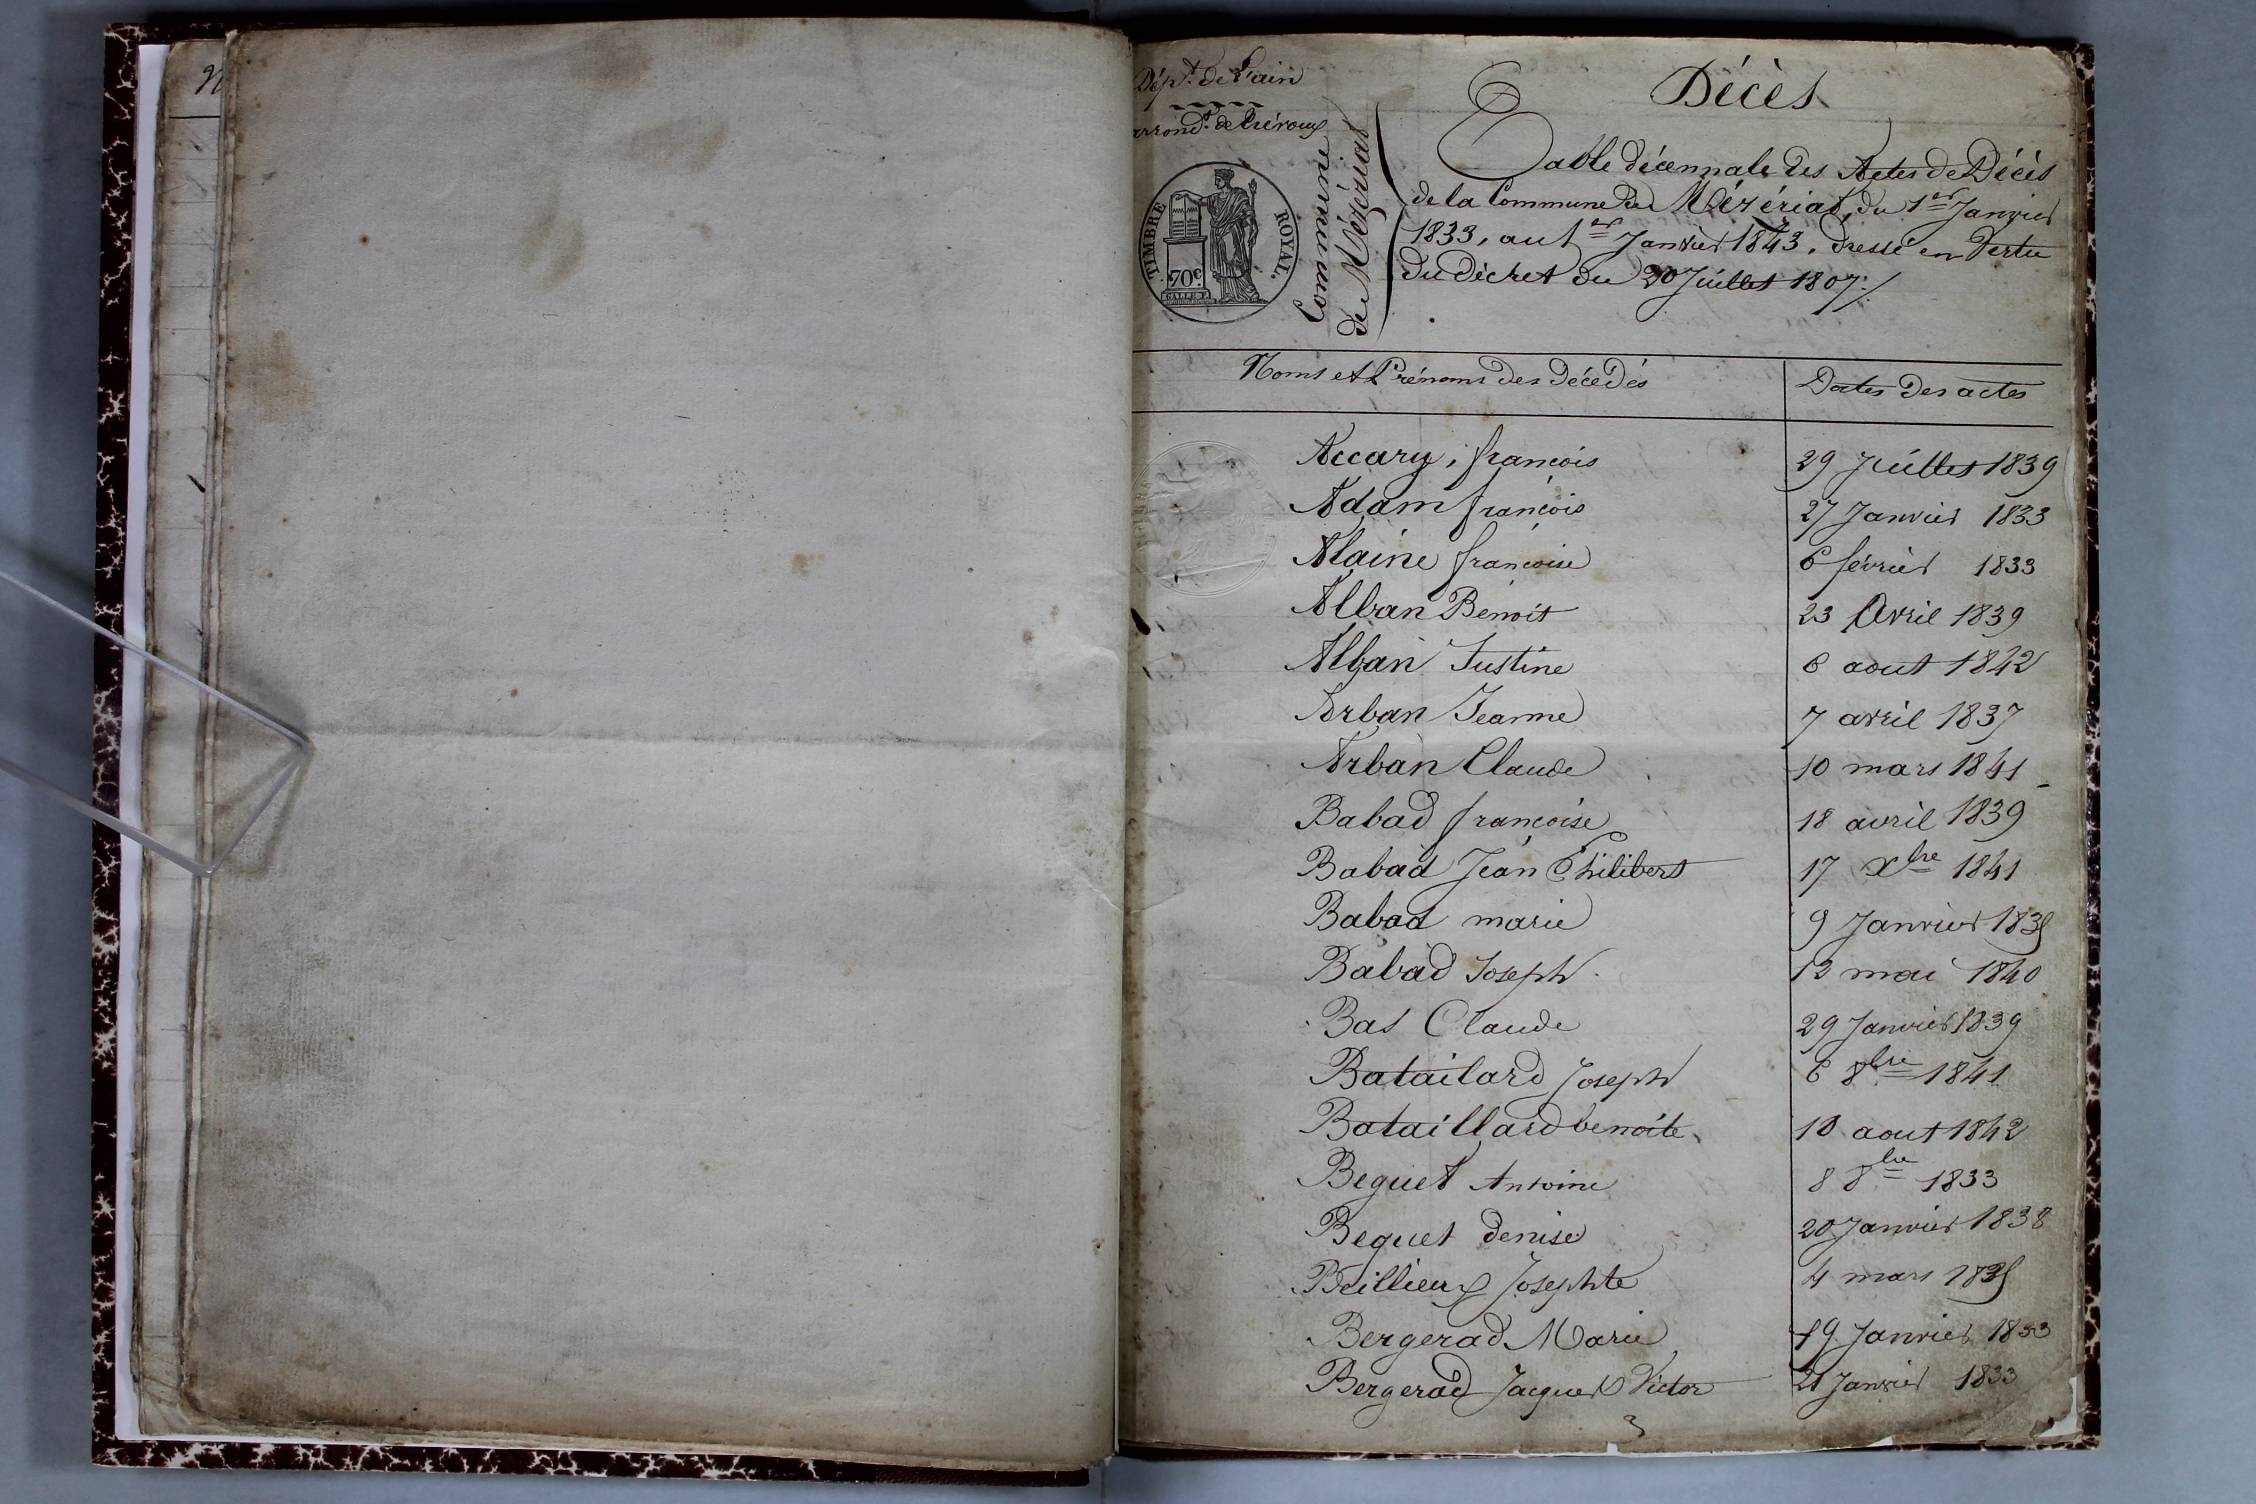 Dépt. de l'ain
arrondt. de trévoux
TIMBRE ROYAL.
70c.
Commune
de Mézériat
Décès
Table décennale des Actes de Décès
de la Commune de Mézériat, du 1er Janvier
1833, au 1er Janvier 1843, dressé en Vertu
du décret du 20 Juillet 1807./
Noms et Prénoms des décédés Dates des actes
Accary, françois 29 Juillet 1839
Adam françois 27 Janvier 1833
Alaine françoise 6 février 1833
Alban Benoit 23 Avril 1839
Alban Justine 6 aout 1842
Arban Jeanne 7 avril 1837
Arban Claude 10 mars 1841
Babad françoise 18 avril 1839
Babad Jean Philibert 17 Xbre 1841
Babad marie 9 Janvier 1835
Babad Joseph 12 mai 1840
Bas Claude 29 Janvier 1839
Batailard Joseph 6 8bre 1841
Bataillard benoite 10 aout 1842
Beguet Antoine 8 8bre 1833
Beguet denise 20 Janvier 1838
Beillieux Josephte 4 mars 1835
Bergerad Marie 19 Janvier 1833
Bergerad Jacques Victor 21 Janvier 1833